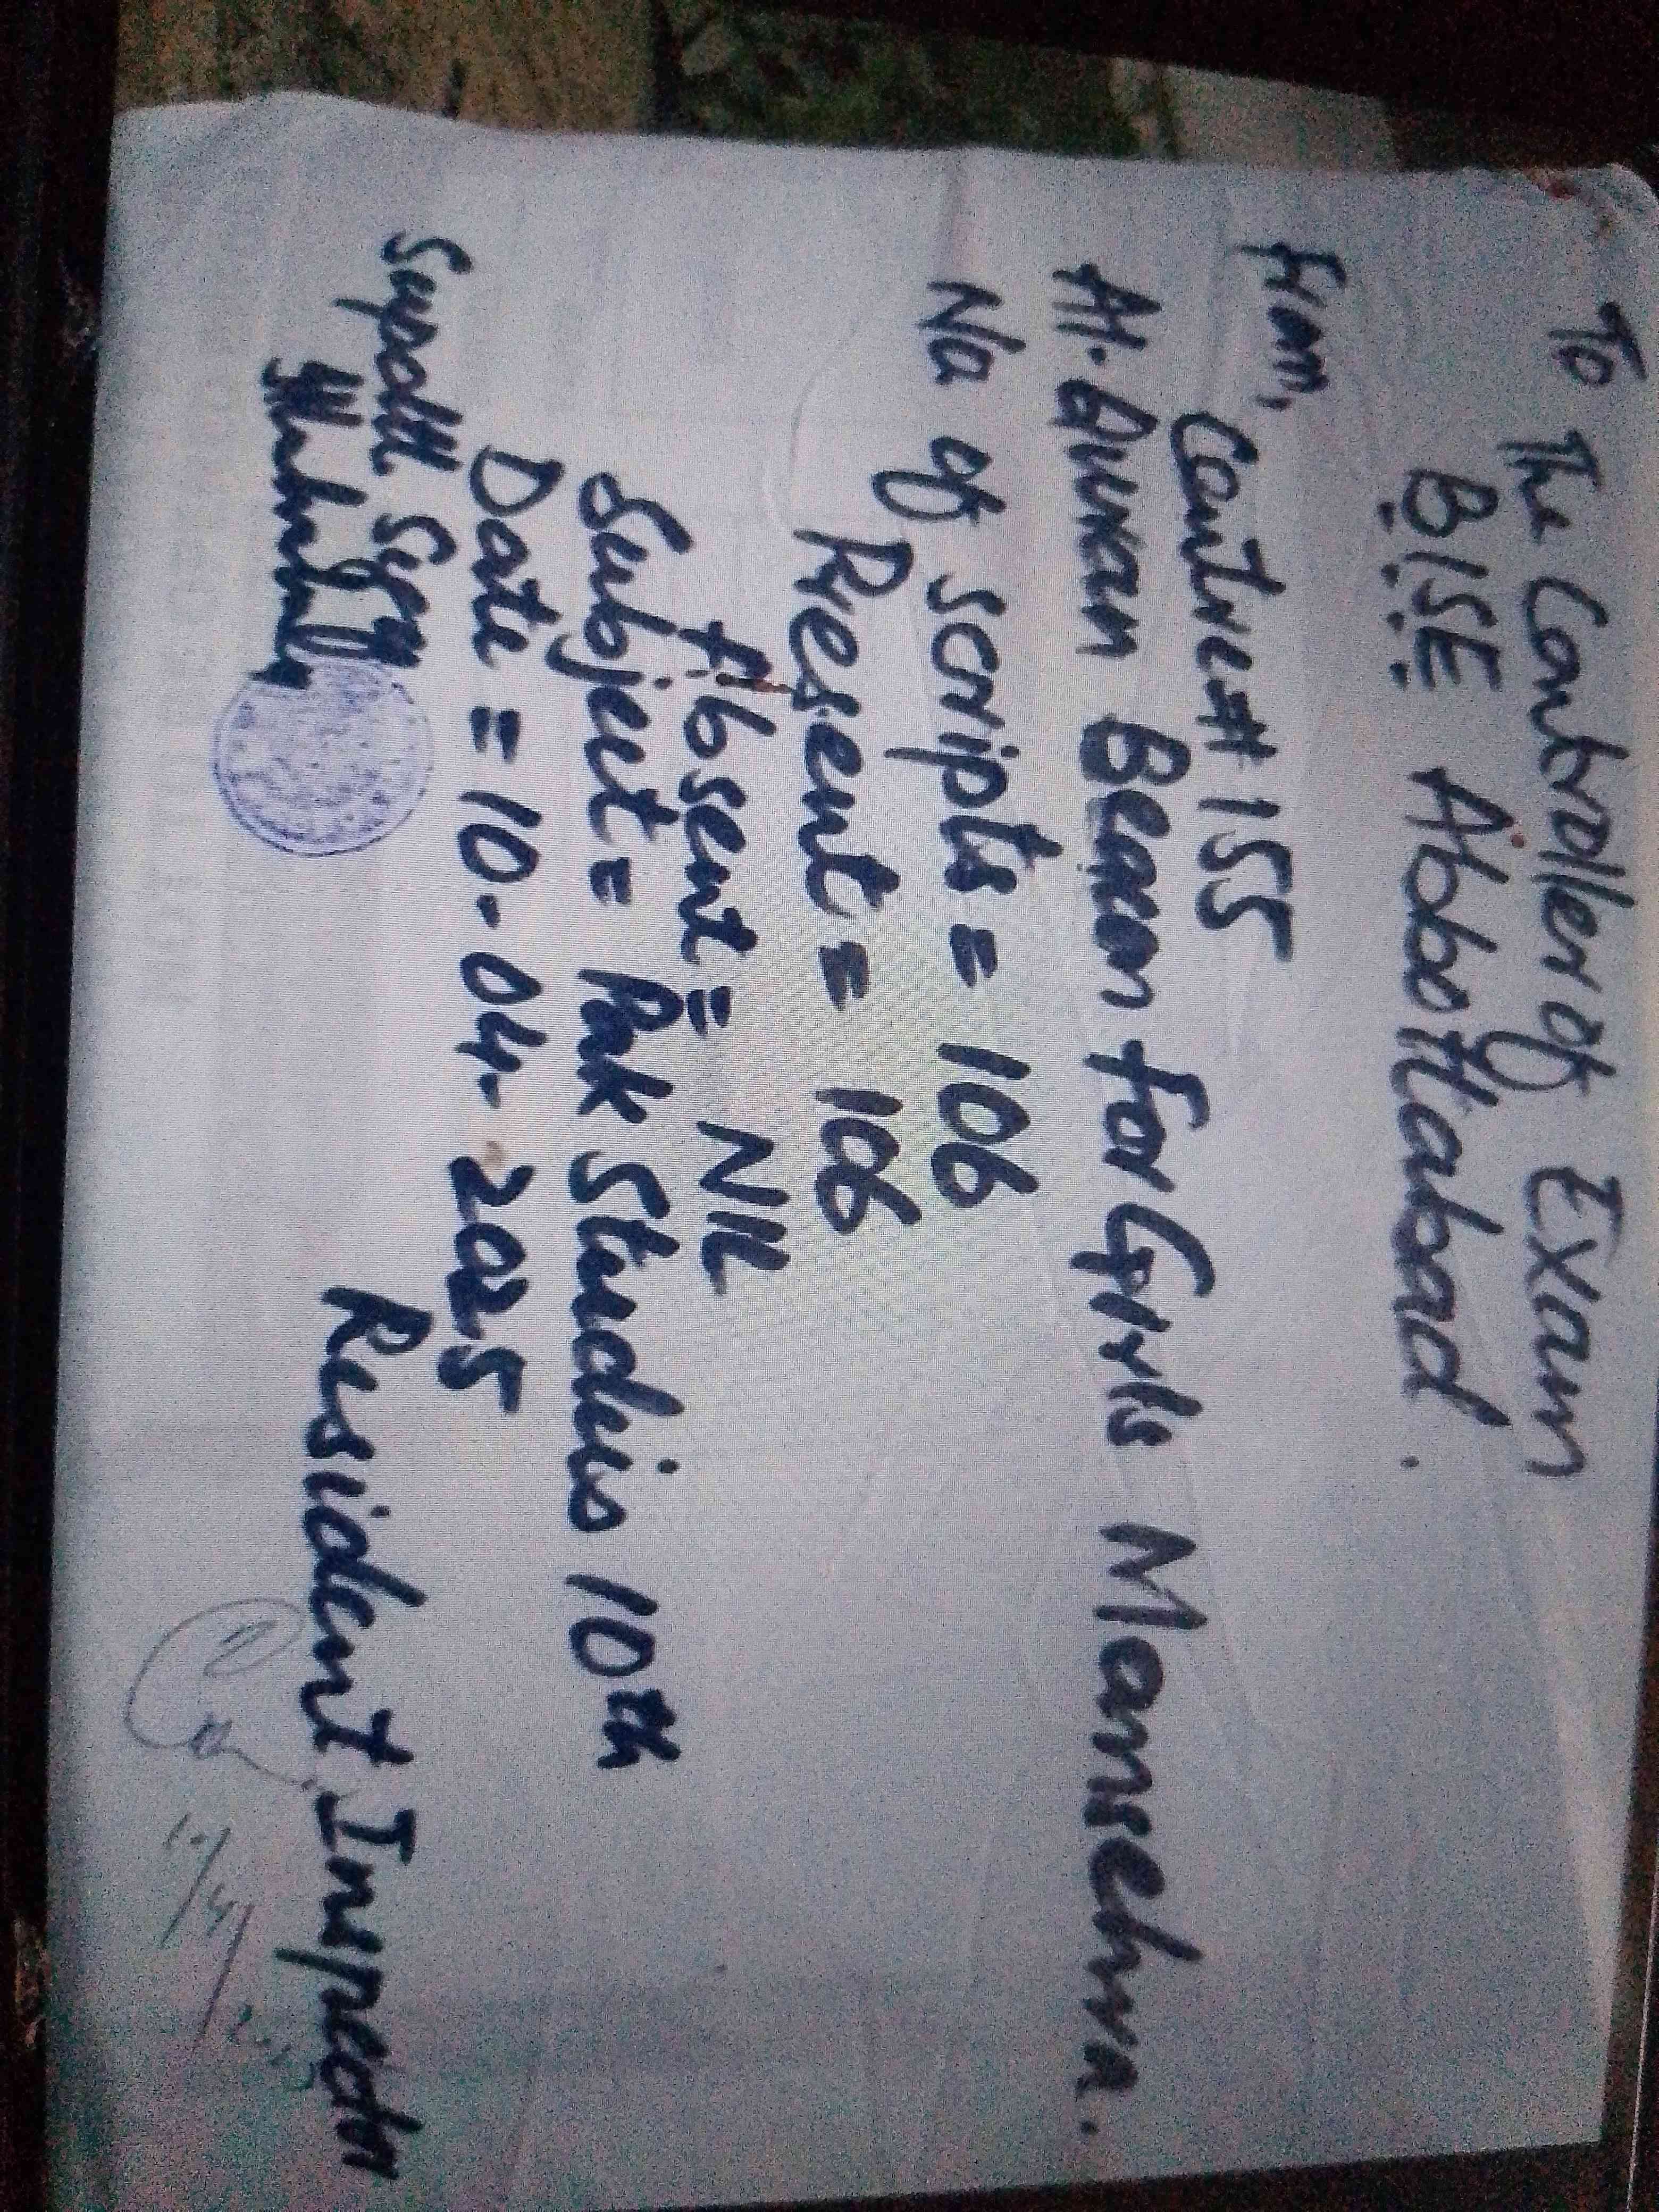 To The Controller of Exam
B.I.S.E Abbottabad.
From,
Centre # 155
Al-Quran Beacon for Girls Mansehra.
No of scripts = 106
Present = 106
Absent = NIL
Subject = Pak Studies 10th
Date = 10.04.2025
Supdtt Sign
Resident Inspector